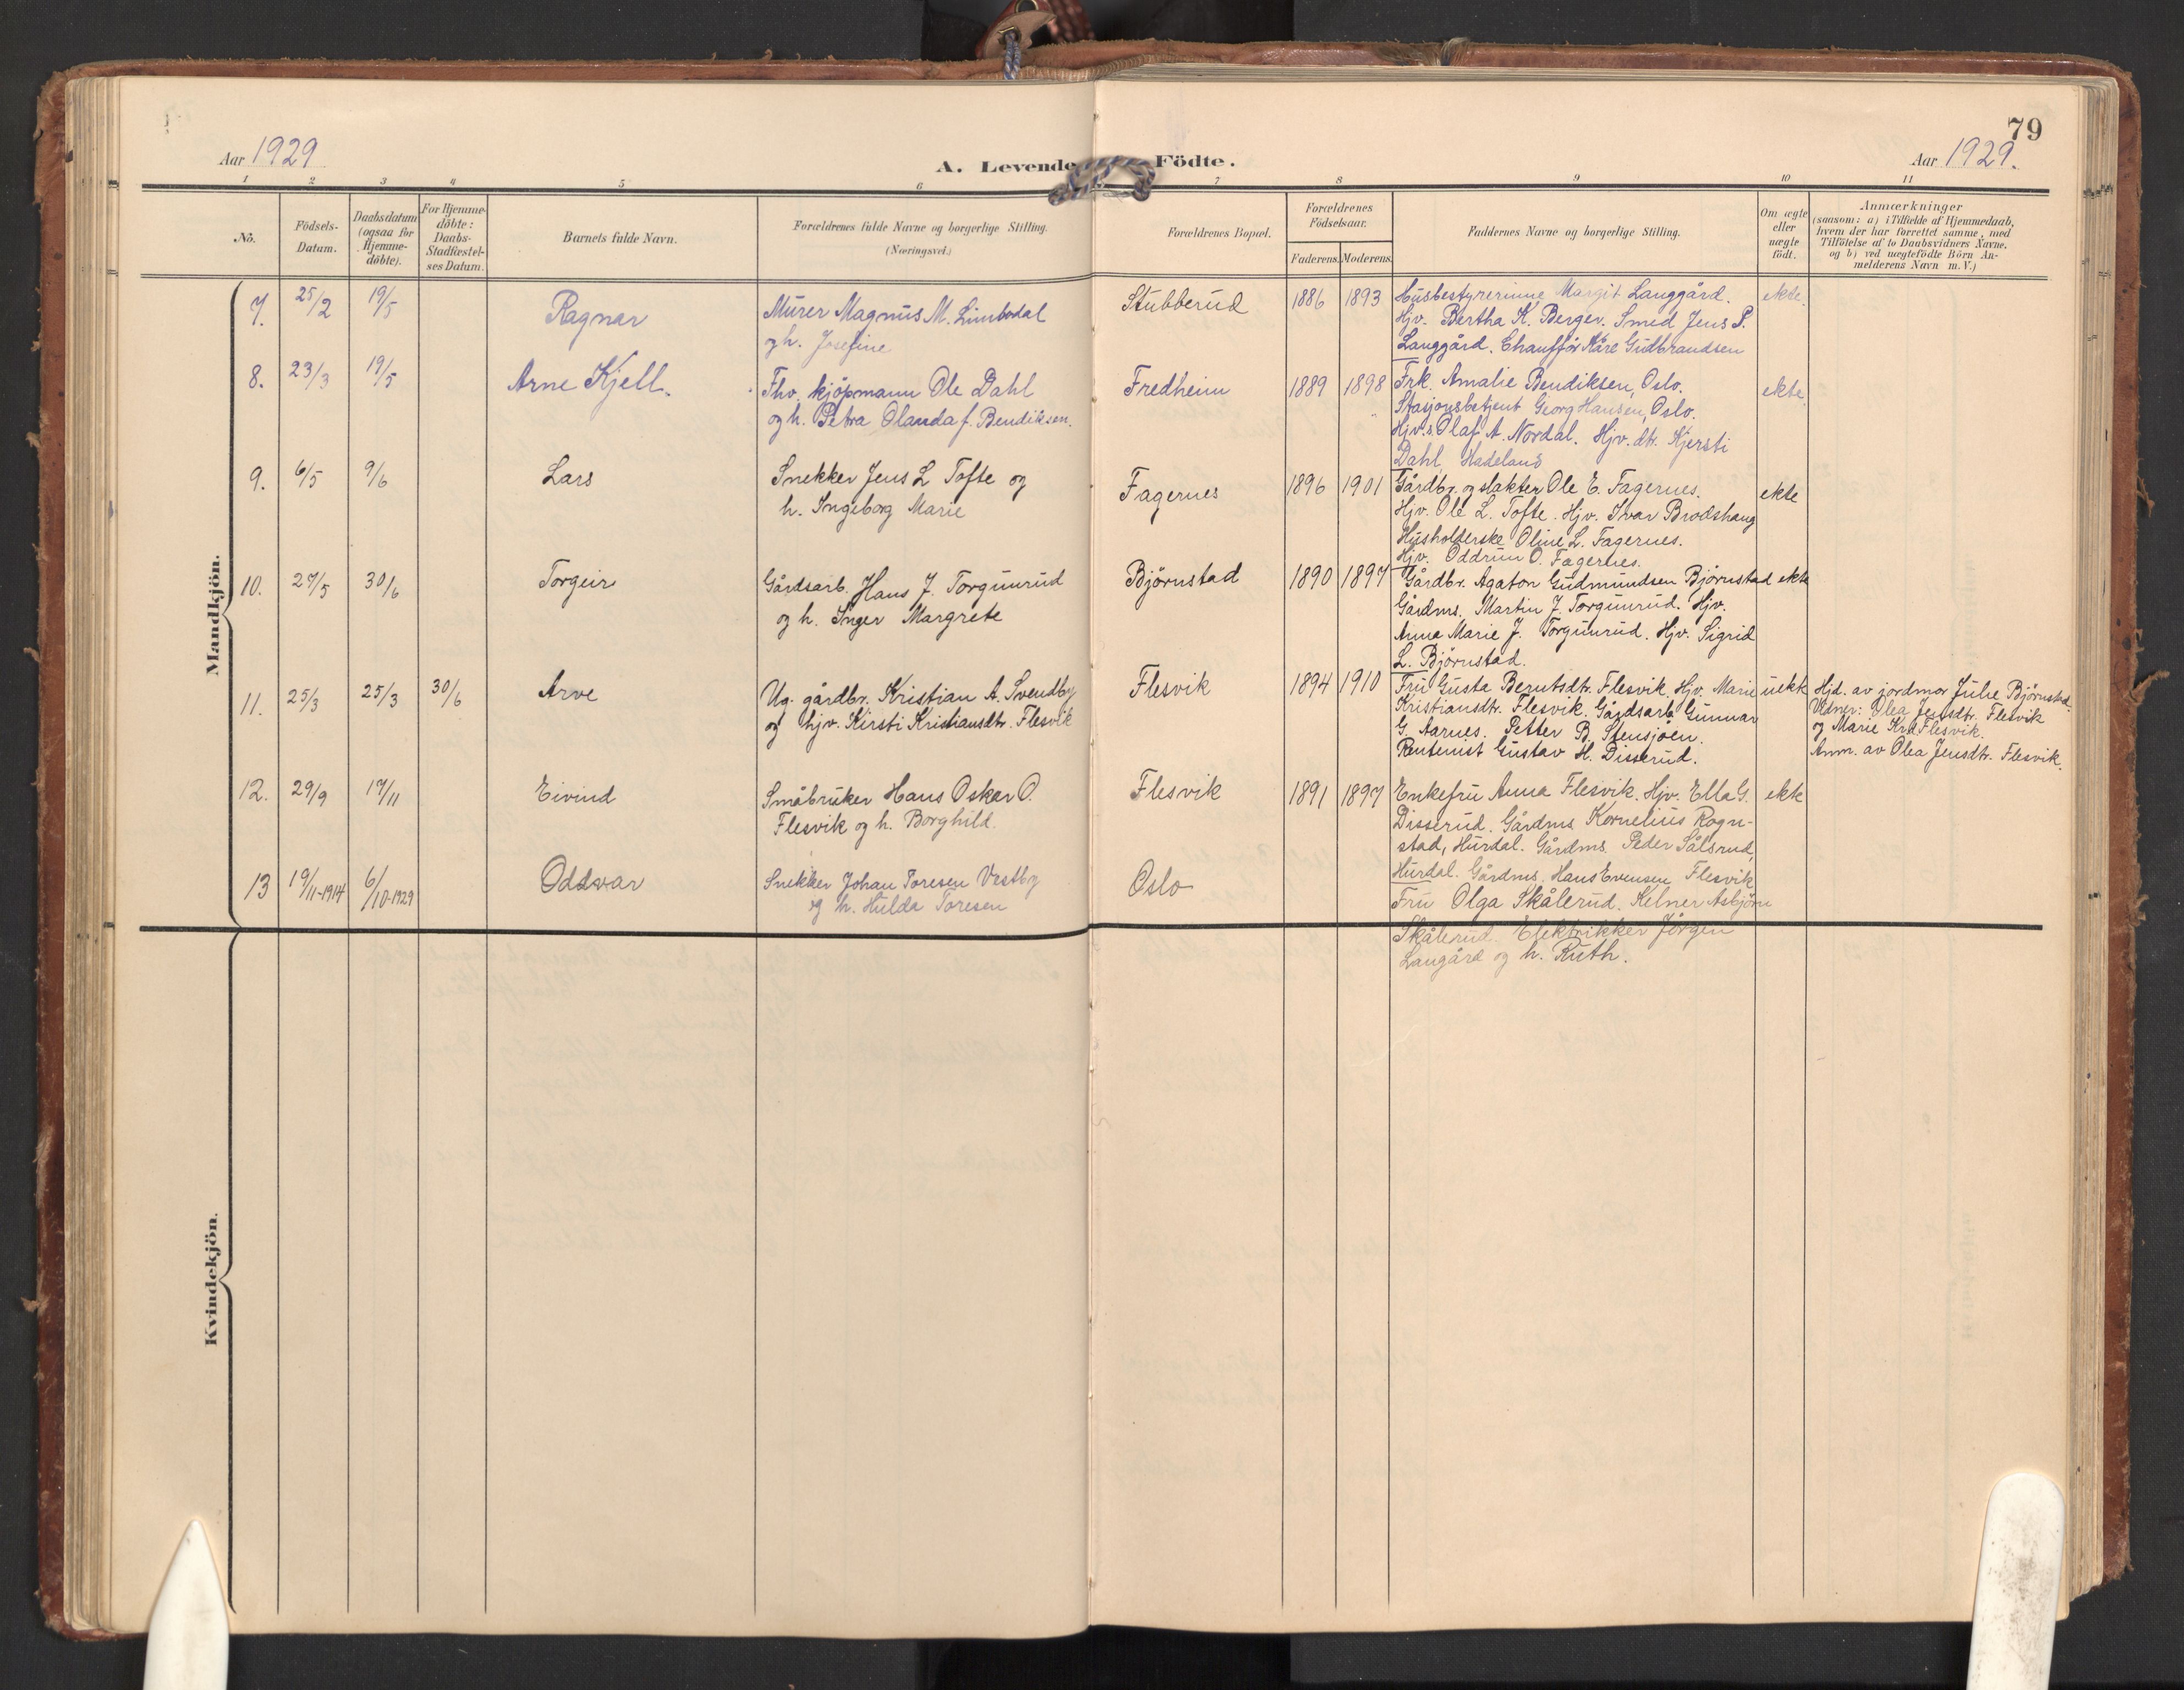 79
Aar 1929
A. Levende Födte.
Aar 1929.
1 2 3 4 5 6 7 8 9 10 11
No.
Födsels-
Datum.
Daabsdatum
(ogsaa for
Hjemme-
döbte).
For Hjemme-
döbte:
Daabs-
Stadfæstel-
ses Datum.
Barnets fulde Navn.
Forældrenes fulde Navne og borgerlige Stilling.
(Næringsvei.)
Forældrenes Bopæl.
Forældrenes
Födselsaar.
Faderens.
Moderens.
Faddernes Navne og borgerlige Stilling.
Om ægte
eller
uægte
födt.
Anmærkninger
(saasom: a) i Tilfælde af Hjemmedaab,
hvem der har forrettet samme, med
Tilföielse af to Daabsvidners Navne,
og b) ved uægtefödte Börn An-
melderens Navn m. V.)
Mandkjön.
7.
25/2
19/5
Ragnar
Murer Magnus M. Limbodal
og h. Josefine
Stubberud
1886
1893
Husbestyrerinne Margit Langgård.
Hjv. Bertha K. Berger. Smed Jens P.
Langgård. Chauffør Kåre Gudbrandsen
ekte.
8.
23/3
19/5
Arne Kjell.
Fhv. kjöpmann Ole Dahl
og h. Petra Olanda f. Bendiksen.
Fredheim
1889
1898
Frk. Amalie Bendiksen, Oslo.
Stasjonsbetjent Georg Hansen, Oslo.
Hjv.s. Olaf A. Nordal. Hjv. dtr. Kjersti
Dahl, Hadeland
ekte.
9.
6/5
9/6
Lars
Snekker Jens L Tofte og
h. Ingeborg Marie
Fagernes
1896
1901
Gårdbr. og slakter Ole E. Fagernes.
Hjv. Ole L. Tofte. Hjv. Ivar Brodshaug
Husholderske Oline L. Fagernes.
Hjv. Oddrun O. Fagernes.
ekte
10.
27/5
30/6
Torgeir
Gårdsarb. Hans J. Torgunrud
og h. Inger Margrete
Björnstad
1890
1897
Gårdbr. Agaton Gudmundsen Björnstad
Gårdms. Martin J. Torgunrud. Hjv.
Anna Marie J. Torgunrud. Hjv. Sigrid
L. Björnstad.
ekte
11.
25/3
25/3
30/6
Arve
Ug. gårdbr. Kristian A. Svendby
og hjv. Kirsti Kristiansdtr. Flesvik
Flesvik
1894
1910
Fru Gusta Berntsdtr. Flesvik. Hjv. Marie
Kristiansdtr. Flesvik. Gårdsarb. Gunnar
G. Aarnes. Petter B. Stensjöen.
Rentenist Gustav H. Disserud.
uekte
Hjd. av jordmor Julie Björnstad.
Vidner: Olea Jensdtr. Flesvik
og Marie Krd Flesvik.
Anm. av Olea Jensdtr. Flesvik.
12.
29/9
17/11
Eivind
Småbruker Hans Oskar O.
Flesvik og h. Borghild.
Flesvik
1891
1897
Enkefru Anna Flesvik. Hjv. Ella G.
Disserud. Gårdms. Kornelius Rogn-
stad, Hurdal. Gårdms. Peder Sålsrud,
Hurdal. Gårdms. Hans Evensen Flesvik
ekte
13
19/11-1914
6/10-1929
Oddvar
Snekker Johan Toresen Vestby
og h. Hulda Toresen
Oslo
Fru Olga Skålerud. Kelner Asbjörn
Skålerud. Elektrikker Jörgen
Langård og h. Ruth.
Kvindekjön.